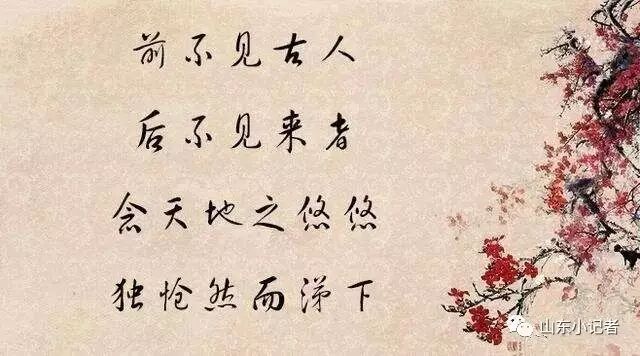 前不见古人
后不见来者
念天地之悠悠
独怆然而涕下
山东小记者